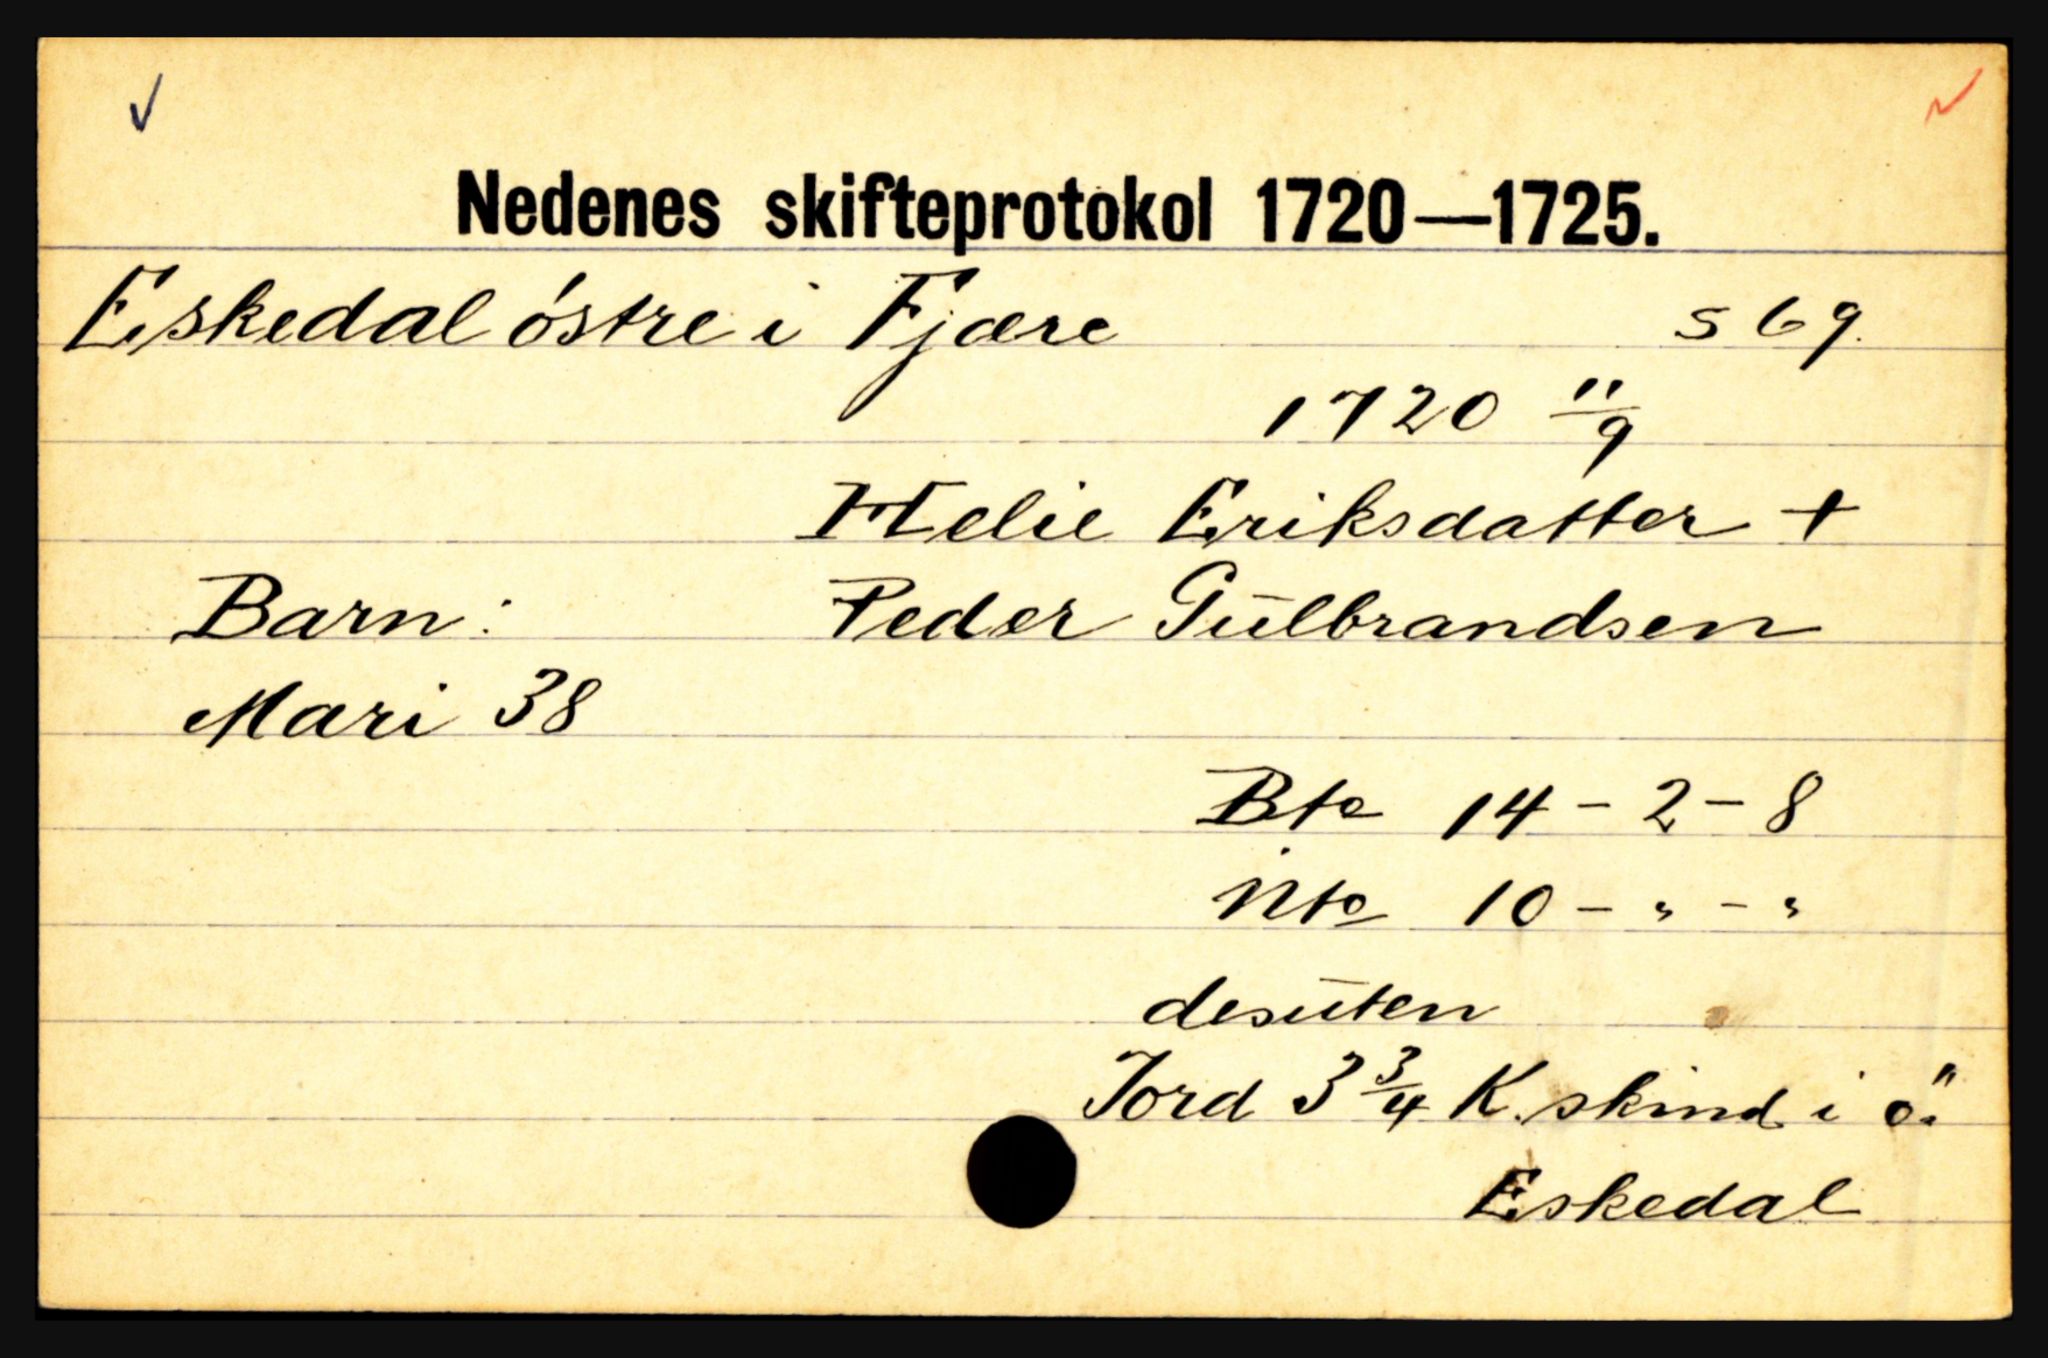 Nedenes skifteprotokol 1720—1725.
Eskedal östre i Fjære s 69.
1720 11/9
Helie Eriksdatter +
Barn: Peder Gulbrandsen
Mari 38
Bto 14 - 2 - 8
Nto 10 - " - "
desuten
Jord 3 3/4 K. skind i ö.
Eskedal